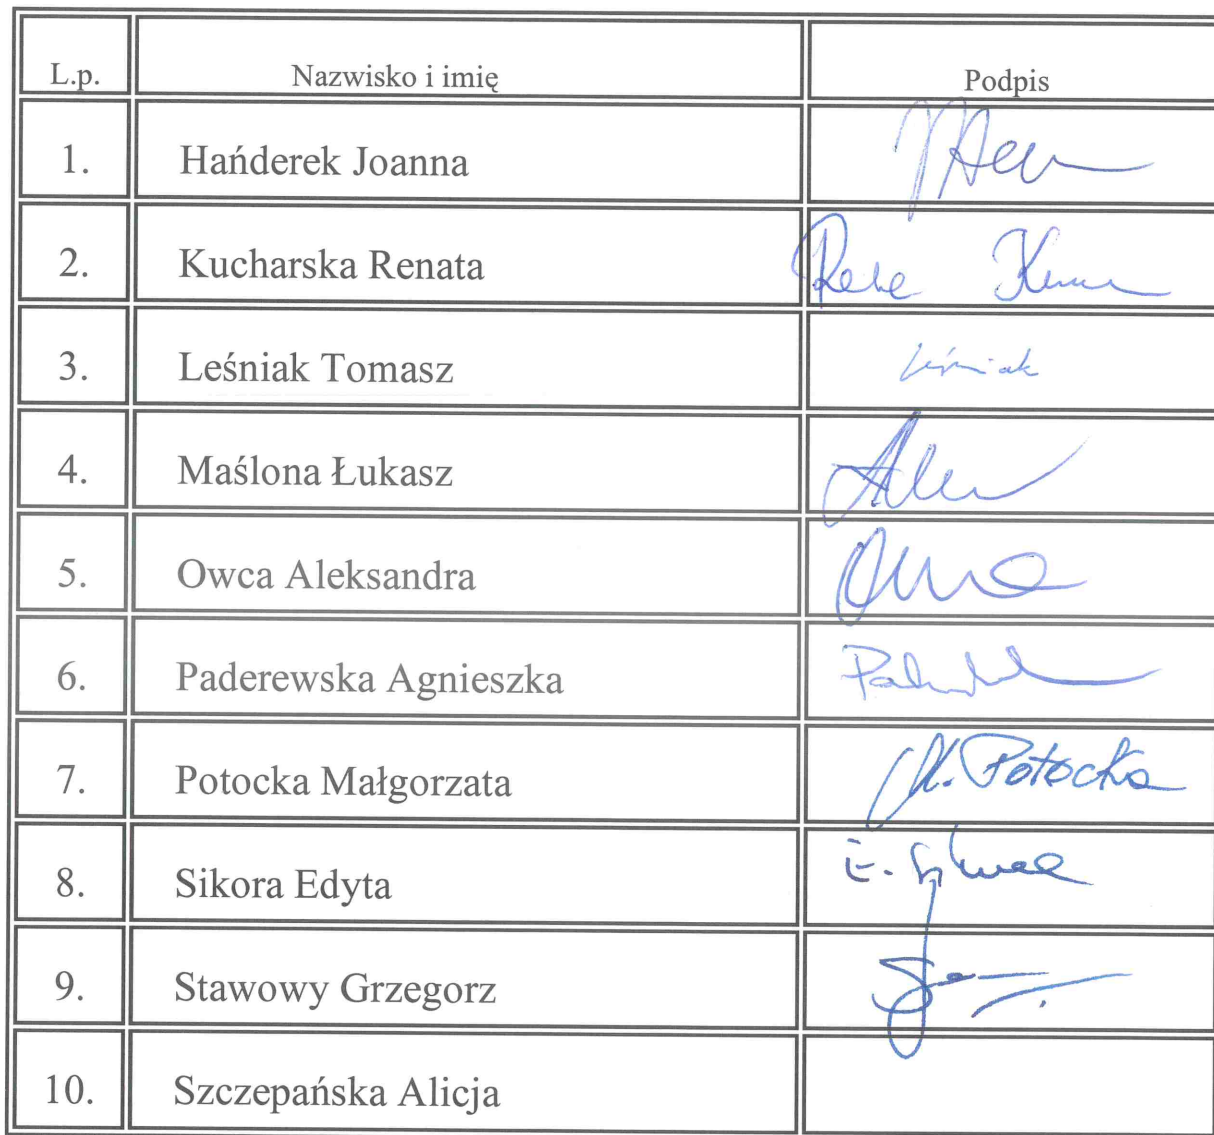 L.p. Nazwisko i imię Podpis
1. Hańderek Joanna
2. Kucharska Renata
3. Leśniak Tomasz Leśniak
4. Maślona Łukasz
5. Owca Aleksandra
6. Paderewska Agnieszka
7. Potocka Małgorzata M. Potocka
8. Sikora Edyta E.
9. Stawowy Grzegorz
10. Szczepańska Alicja